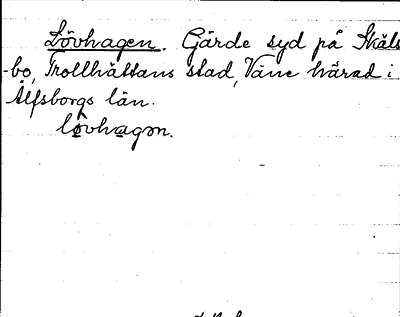 Lövhagen. Gärde syd på Skåls
-bo, Trollhättans stad, Väne härad i
Älfsborgs län.
lôvhagən.